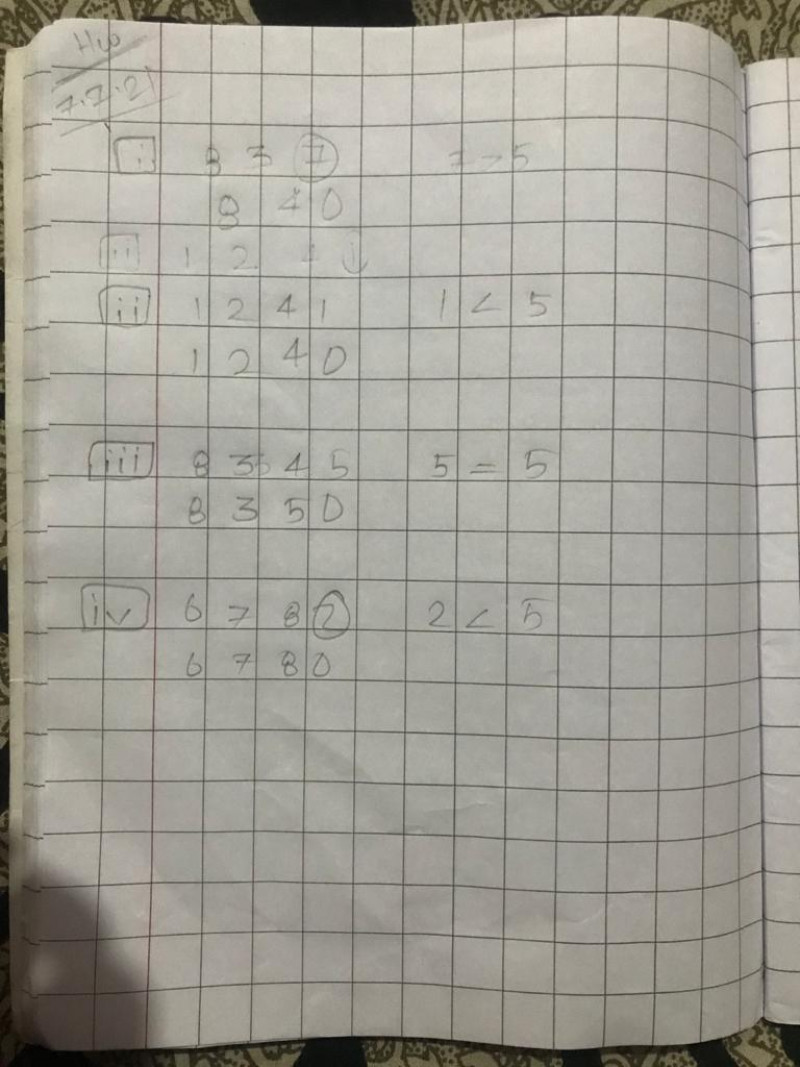 HW
7.7.21
i 8 3 7 7 > 5
8 4 0
ii 1 2 4 1
ii 1 2 4 1 1 < 5
1 2 4 0
iii 8 3 4 5 5 = 5
8 3 5 0
iv 6 7 8 2 2 < 5
6 7 8 0